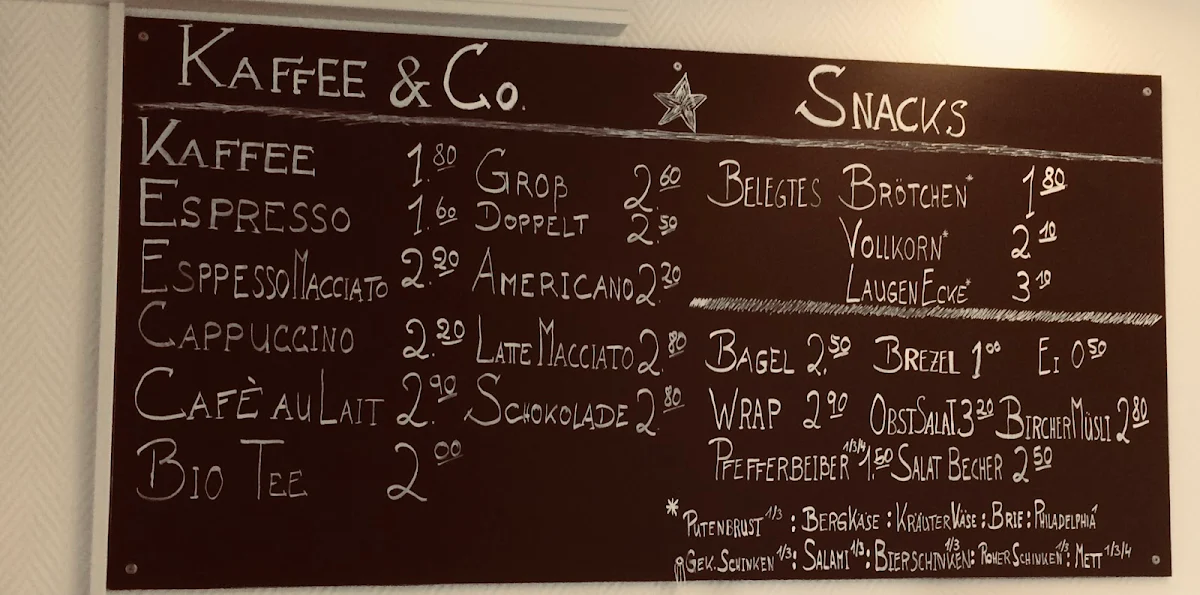 KAFFEE & Co.
KAFFEE 1.80 GROß 2.60
ESPRESSO 1.60 DOPPELT 2.50
ESPPESSO MACCIATO 2.20 AMERICANO 2.20
CAPPUCCINO 2.20 LATTE MACCIATO 2.80
CAFÈ AU LAIT 2.90 SCHOKOLADE 2.80
BIO TEE 2.00
SNACKS
BELEGTES BRÖTCHEN* 1.80
VOLLKORN* 2.10
LAUGENECKE* 3.10
BAGEL 2.50 BREZEL 1.00 EI 0.50
WRAP 2.90 OBSTSALAT 3.20 BIRCHERMÜSLI 2.80
PFEFFERBEIßER 1/3/4 1.50 SALAT BECHER 2.50
* PUTENBRUST 1/3 : BERGKÄSE : KRÄUTERKÄSE : BRIE : PHILADELPHIA
GEK. SCHINKEN 1/3 : SALAMI 1/3 : BIERSCHINKEN 1/3 : ROHER SCHINKEN 1/3 : METT 1/3/4